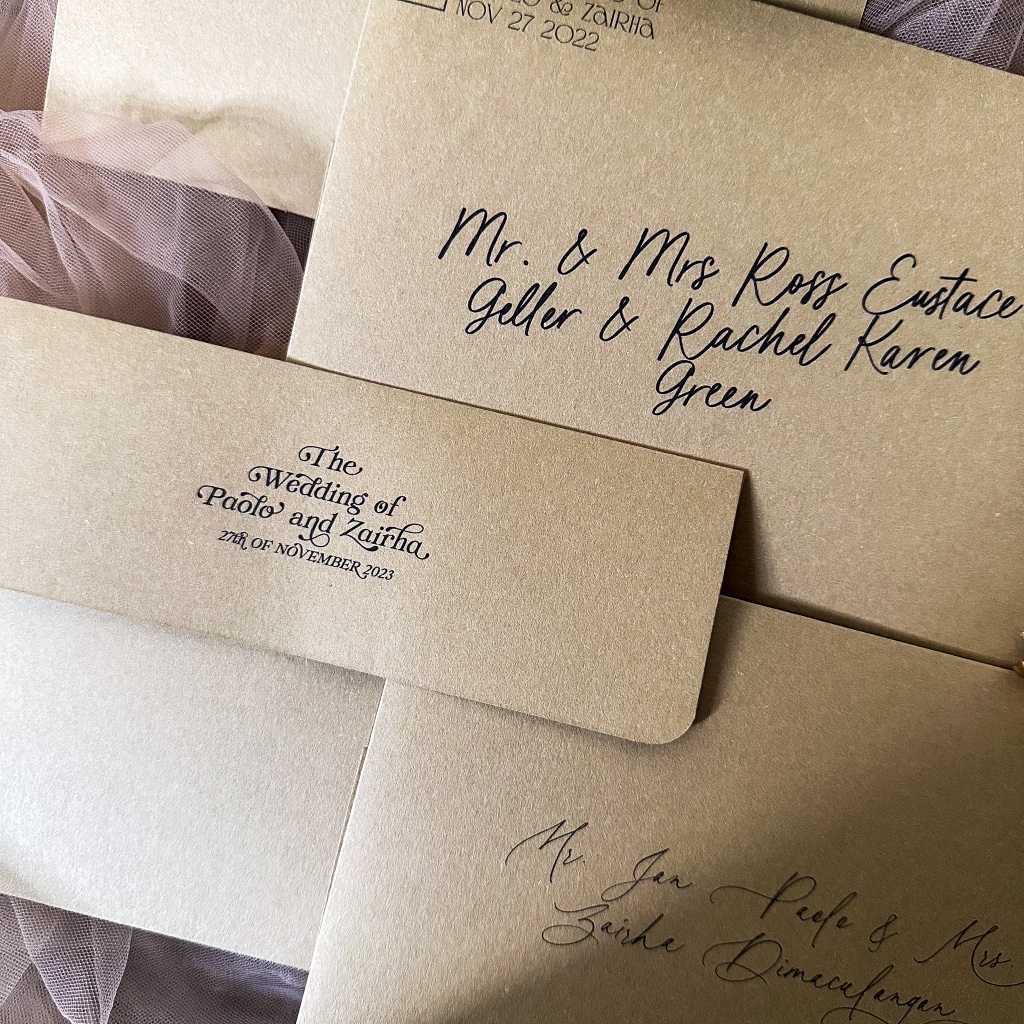 & Zairha
NOV 27 2022
Mr. & Mrs Ross Eustace
Geller & Rachel Karen
Green
The
Wedding of
Paolo and Zairha
27th OF NOVEMBER 2023
Mr. Jan Paolo & Mrs.
Zairha Dimaculangan